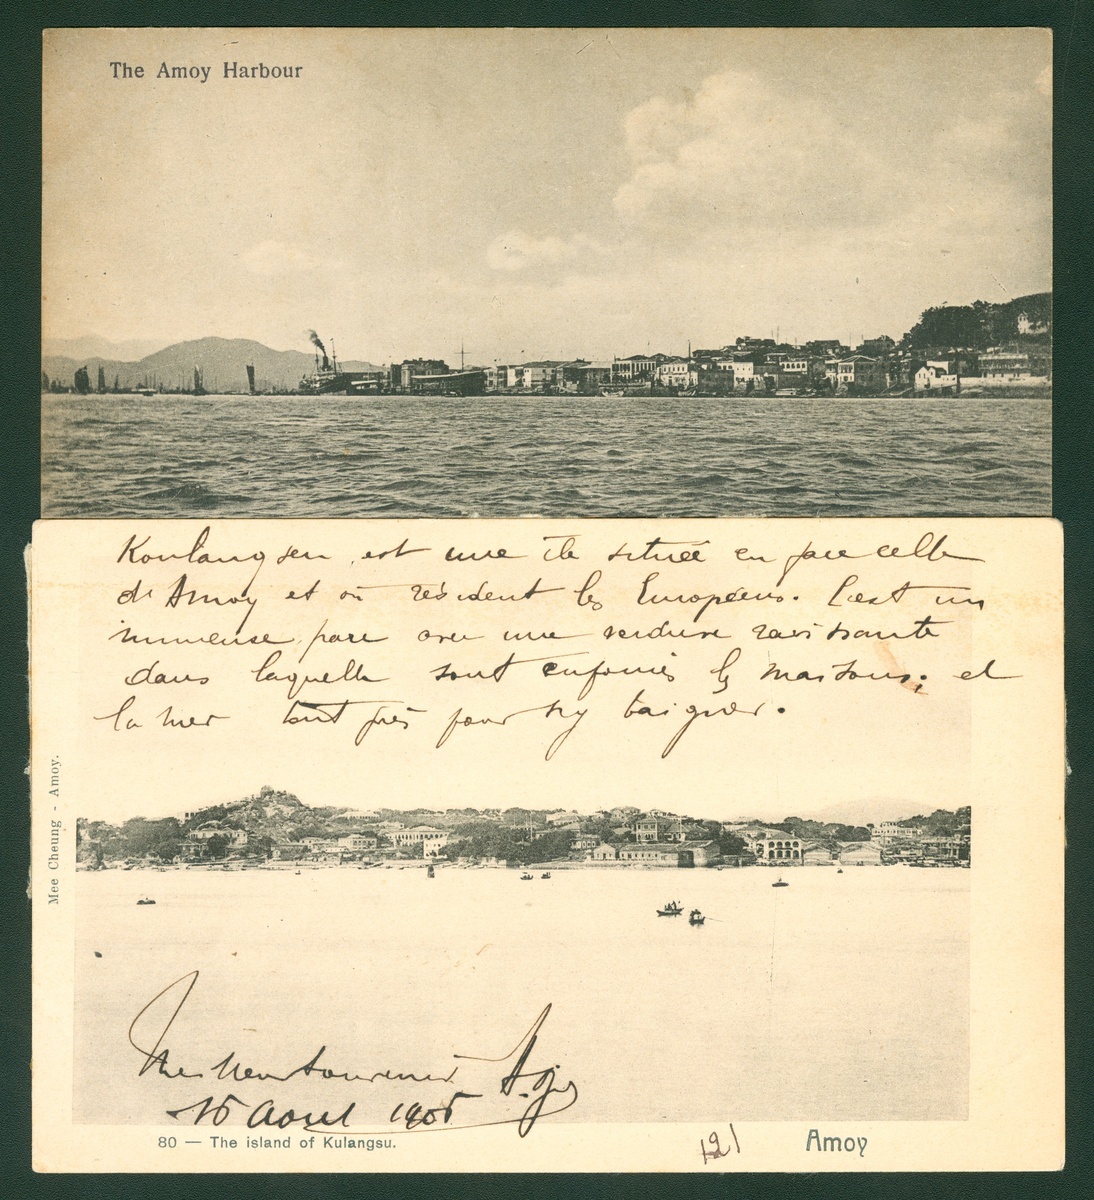 The Amoy Harbour
Koulangseu est une île située en face celle
de Amoy et où résident les Européens. C'est un
immense parc avec une verdure ravissante
dans laquelle sont enfouies les maisons; et
la mer tout près pour s'y baigner.
Mee Cheung - Amoy.
Meilleur souvenir
15 Aout 1905
80 — The island of Kulangsu.
121
Amoy